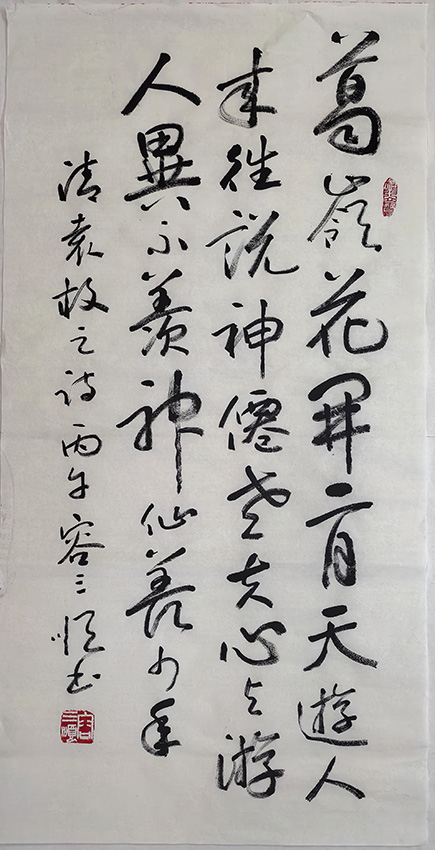 葛嶺花開二月天遊人
来往説神僊老夫心与游
人異不羨神仙羨少年
清袁枚之诗丙午容三順书